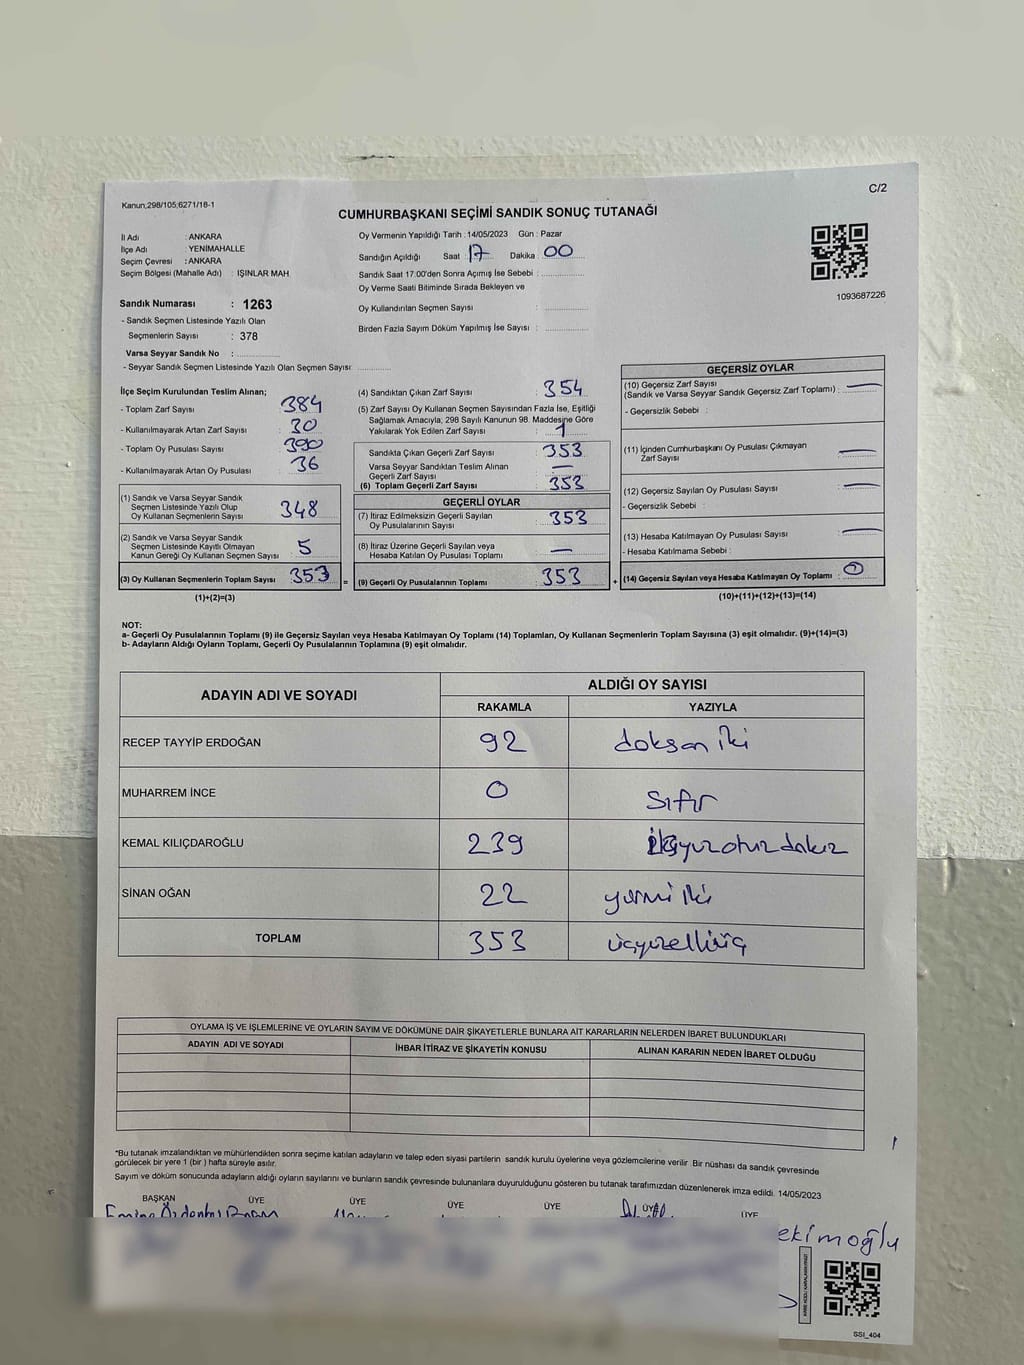 C/2
Kanun,298/105;6271/18-1
CUMHURBAŞKANI SEÇİMİ SANDIK SONUÇ TUTANAĞI
İl Adı : ANKARA
İlçe Adı : YENİMAHALLE
Seçim Çevresi : ANKARA
Seçim Bölgesi (Mahalle Adı) : IŞINLAR MAH.
Sandık Numarası : 1263
- Sandık Seçmen Listesinde Yazılı Olan
Seçmenlerin Sayısı : 378
Varsa Seyyar Sandık No :
- Seyyar Sandık Seçmen Listesinde Yazılı Olan Seçmen Sayısı:
Oy Vermenin Yapıldığı Tarih : 14/05/2023 Gün : Pazar
Sandığın Açıldığı Saat : 17 Dakika 00
Sandık Saat 17:00'den Sonra Açımış İse Sebebi :
Oy Verme Saati Bitiminde Sırada Bekleyen ve
Oy Kullandırılan Seçmen Sayısı :
Birden Fazla Sayım Döküm Yapılmış İse Sayısı :
1093687226
İlçe Seçim Kurulundan Teslim Alınan;
- Toplam Zarf Sayısı 384
- Kullanılmayarak Artan Zarf Sayısı 30
- Toplam Oy Pusulası Sayısı 390
- Kullanılmayarak Artan Oy Pusulası 36
(1) Sandık ve Varsa Seyyar Sandık
Seçmen Listesinde Yazılı Olup
Oy Kullanan Seçmenlerin Sayısı 348
(2) Sandık ve Varsa Seyyar Sandık
Seçmen Listesinde Kayıtlı Olmayan
Kanun Gereği Oy Kullanan Seçmen Sayısı 5
(3) Oy Kullanan Seçmenlerin Toplam Sayısı 353 =
(1)+(2)=(3)
(4) Sandıktan Çıkan Zarf Sayısı 354
(5) Zarf Sayısı Oy Kullanan Seçmen Sayısından Fazla İse, Eşitliği
Sağlamak Amacıyla; 298 Sayılı Kanunun 98. Maddesine Göre
Yakılarak Yok Edilen Zarf Sayısı 1
Sandıkta Çıkan Geçerli Zarf Sayısı 353
Varsa Seyyar Sandıktan Teslim Alınan
Geçerli Zarf Sayısı —
(6) Toplam Geçerli Zarf Sayısı 353
GEÇERLİ OYLAR
(7) İtiraz Edilmeksizin Geçerli Sayılan
Oy Pusulalarının Sayısı 353
(8) İtiraz Üzerine Geçerli Sayılan veya
Hesaba Katılan Oy Pusulası Toplamı —
(9) Geçerli Oy Pusulalarının Toplamı 353 +
GEÇERSİZ OYLAR
(10) Geçersiz Zarf Sayısı
(Sandık ve Varsa Seyyar Sandık Geçersiz Zarf Toplamı) : —
- Geçersizlik Sebebi :
(11) İçinden Cumhurbaşkanı Oy Pusulası Çıkmayan
Zarf Sayısı —
(12) Geçersiz Sayılan Oy Pusulası Sayısı —
- Geçersizlik Sebebi :
(13) Hesaba Katılmayan Oy Pusulası Sayısı —
- Hesaba Katılmama Sebebi :
(14) Geçersiz Sayılan veya Hesaba Katılmayan Oy Toplamı :
(10)+(11)+(12)+(13)=(14)
NOT:
a- Geçerli Oy Pusulalarının Toplamı (9) ile Geçersiz Sayılan veya Hesaba Katılmayan Oy Toplamı (14) Toplamları, Oy Kullanan Seçmenlerin Toplam Sayısına (3) eşit olmalıdır. (9)+(14)=(3)
b- Adayların Aldığı Oyların Toplamı, Geçerli Oy Pusulalarının Toplamına (9) eşit olmalıdır.
ADAYIN ADI VE SOYADI ALDIĞI OY SAYISI
RAKAMLA YAZIYLA
RECEP TAYYİP ERDOĞAN 92 doksan iki
MUHARREM İNCE 0 Sıfır
KEMAL KILIÇDAROĞLU 239 ikiyuzotuzdokuz
SİNAN OĞAN 22 yirmi iki
TOPLAM 353 üçyüzelliüç
OYLAMA İŞ VE İŞLEMLERİNE VE OYLARIN SAYIM VE DÖKÜMÜNE DAİR ŞİKAYETLERLE BUNLARA AİT KARARLARIN NELERDEN İBARET BULUNDUKLARI
ADAYIN ADI VE SOYADI İHBAR İTİRAZ VE ŞİKAYETİN KONUSU ALINAN KARARIN NEDEN İBARET OLDUĞU
*Bu tutanak imzalandıktan ve mühürlendikten sonra seçime katılan adayların ve talep eden siyasi partilerin sandık kurulu üyelerine veya gözlemcilerine verilir. Bir nüshası da sandık çevresinde
görülecek bir yere 1 (bir) hafta süreyle asılır.
Sayım ve döküm sonucunda adayların aldığı oyların sayılarını ve bunların sandık çevresinde bulunanlara duyurulduğunu gösteren bu tutanak tarafımızdan düzenlenerek imza edildi. 14/05/2023
BAŞKAN ÜYE ÜYE ÜYE ÜYE ÜYE ÜYE
ekimoğlu
SSI_404